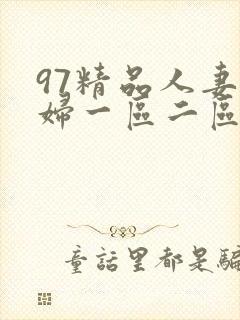 97精品人妻
婦一區二區
童話里都是騙